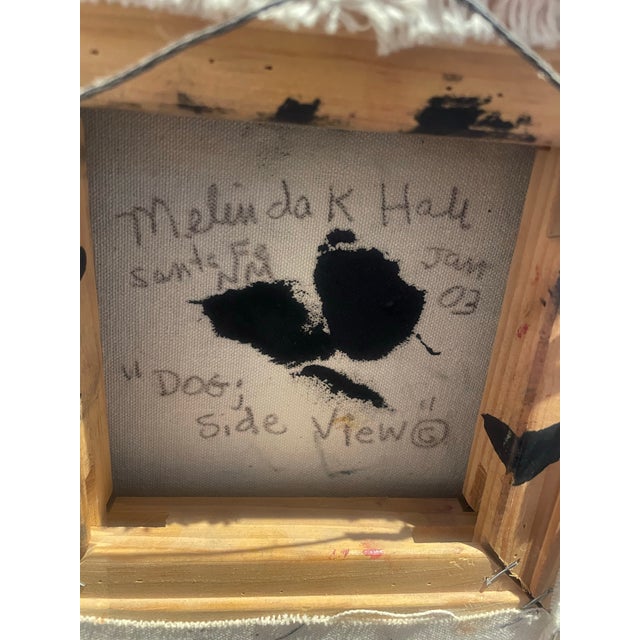 Melinda K Hall
Santa Fe Jan
NM 03
"DOG;
Side View" ©